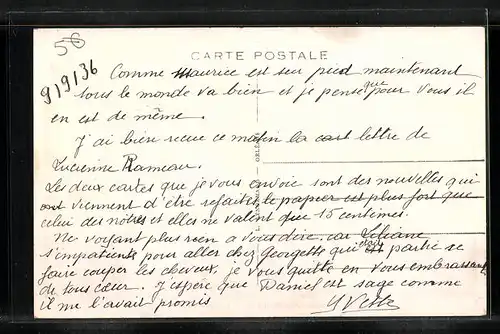 56
CARTE POSTALE
9/9/36
Comme Maurice est seu pied maintenant
tous le monde va bien et je pense que pour vous il
en est de même.
J'ai bien recue ce matin la cart lettre de
Lucienne Rameau.
Les deux cartes que je vous envoie sont des nouvelles qui
viennent d'être refaites, le papier est plus fort que
celui des notres et elles ne valent que 15 centimes.
Ne voyant plus rien a vous dire car Liliane
s'impatiente pour aller chez Georgette qui doit partir se
faire couper les cheveux, je vous quitte en vous embrassant
de tous cœur. J'espère que Daniel est sage comme
il me l'avait promis
Yvette